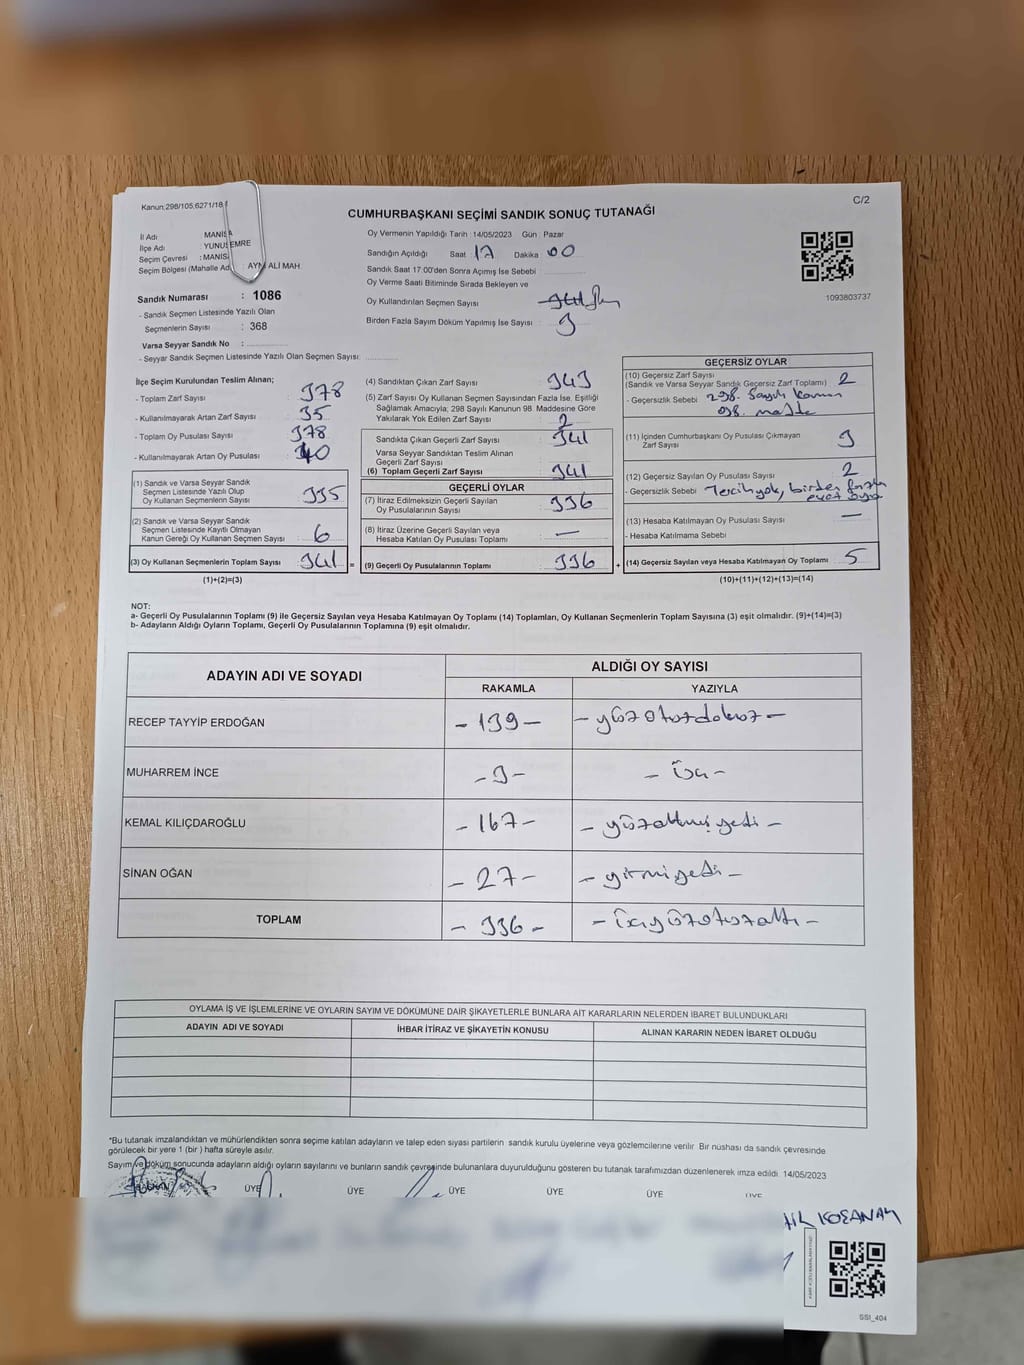 Kanun:298/105,6271/18
C/2
CUMHURBAŞKANI SEÇİMİ SANDIK SONUÇ TUTANAĞI
İl Adı MANİSA
İlçe Adı : YUNUSEMRE
Seçim Çevresi : MANİSA
Seçim Bölgesi (Mahalle Ad AYN ALİ MAH.
Sandık Numarası : 1086
- Sandık Seçmen Listesinde Yazılı Olan
Seçmenlerin Sayısı : 368
Varsa Seyyar Sandık No :
- Seyyar Sandık Seçmen Listesinde Yazılı Olan Seçmen Sayısı:
Oy Vermenin Yapıldığı Tarih : 14/05/2023 Gün : Pazar
Sandığın Açıldığı Saat : 17 Dakika : 00
Sandık Saat 17.00'den Sonra Açımış İse Sebebi :
Oy Verme Saati Bitiminde Sırada Bekleyen ve
Oy Kullandırılan Seçmen Sayısı :
Birden Fazla Sayım Döküm Yapılmış İse Sayısı : 3
1093803737
İlçe Seçim Kurulundan Teslim Alınan;
- Toplam Zarf Sayısı : 378
- Kullanılmayarak Artan Zarf Sayısı : 35
- Toplam Oy Pusulası Sayısı : 378
- Kullanılmayarak Artan Oy Pusulası : 40
(1) Sandık ve Varsa Seyyar Sandık
Seçmen Listesinde Yazılı Olup
Oy Kullanan Seçmenlerin Sayısı : 335
(2) Sandık ve Varsa Seyyar Sandık
Seçmen Listesinde Kayıtlı Olmayan
Kanun Gereği Oy Kullanan Seçmen Sayısı : 6
(3) Oy Kullanan Seçmenlerin Toplam Sayısı : 341 =
(1)+(2)=(3)
(4) Sandıktan Çıkan Zarf Sayısı : 343
(5) Zarf Sayısı Oy Kullanan Seçmen Sayısından Fazla İse, Eşitliği
Sağlamak Amacıyla; 298 Sayılı Kanunun 98. Maddesine Göre
Yakılarak Yok Edilen Zarf Sayısı : 2
Sandıkta Çıkan Geçerli Zarf Sayısı : 341
Varsa Seyyar Sandıktan Teslim Alınan
Geçerli Zarf Sayısı :
(6) Toplam Geçerli Zarf Sayısı : 341
GEÇERLİ OYLAR
(7) İtiraz Edilmeksizin Geçerli Sayılan
Oy Pusulalarının Sayısı : 336
(8) İtiraz Üzerine Geçerli Sayılan veya
Hesaba Katılan Oy Pusulası Toplamı : —
(9) Geçerli Oy Pusulalarının Toplamı : 336 +
GEÇERSİZ OYLAR
(10) Geçersiz Zarf Sayısı
(Sandık ve Varsa Seyyar Sandık Geçersiz Zarf Toplamı) : 2
- Geçersizlik Sebebi : 298. Sayılı kanun
98. madde
(11) İçinden Cumhurbaşkanı Oy Pusulası Çıkmayan
Zarf Sayısı : 3
(12) Geçersiz Sayılan Oy Pusulası Sayısı : 2
- Geçersizlik Sebebi : Tercih yok, birden fazla
evet oyu
(13) Hesaba Katılmayan Oy Pusulası Sayısı : —
- Hesaba Katılmama Sebebi :
(14) Geçersiz Sayılan veya Hesaba Katılmayan Oy Toplamı : 5
(10)+(11)+(12)+(13)=(14)
NOT:
a- Geçerli Oy Pusulalarının Toplamı (9) ile Geçersiz Sayılan veya Hesaba Katılmayan Oy Toplamı (14) Toplamları, Oy Kullanan Seçmenlerin Toplam Sayısına (3) eşit olmalıdır. (9)+(14)=(3)
b- Adayların Aldığı Oyların Toplamı, Geçerli Oy Pusulalarının Toplamına (9) eşit olmalıdır.
ADAYIN ADI VE SOYADI
ALDIĞI OY SAYISI
RAKAMLA YAZIYLA
RECEP TAYYİP ERDOĞAN - 139 - - yüzotuzdokuz -
MUHARREM İNCE - 3 - - üç -
KEMAL KILIÇDAROĞLU - 167 - - yüzaltmışyedi -
SİNAN OĞAN - 27 - - yirmiyedi -
TOPLAM - 336 - - üçyüzotuzaltı -
OYLAMA İŞ VE İŞLEMLERİNE VE OYLARIN SAYIM VE DÖKÜMÜNE DAİR ŞİKAYETLERLE BUNLARA AİT KARARLARIN NELERDEN İBARET BULUNDUKLARI
ADAYIN ADI VE SOYADI İHBAR İTİRAZ VE ŞİKAYETİN KONUSU ALINAN KARARIN NEDEN İBARET OLDUĞU
*Bu tutanak imzalandıktan ve mühürlendikten sonra seçime katılan adayların ve talep eden siyasi partilerin sandık kurulu üyelerine veya gözlemcilerine verilir. Bir nüshası da sandık çevresinde
görülecek bir yere 1 (bir ) hafta süreyle asılır.
Sayım ve döküm sonucunda adayların aldığı oyların sayılarını ve bunların sandık çevresinde bulunanlara duyurulduğunu gösteren bu tutanak tarafımızdan düzenlenerek imza edildi. 14/05/2023
BAŞKAN ÜYE ÜYE ÜYE ÜYE ÜYE ÜYE
SSI_404